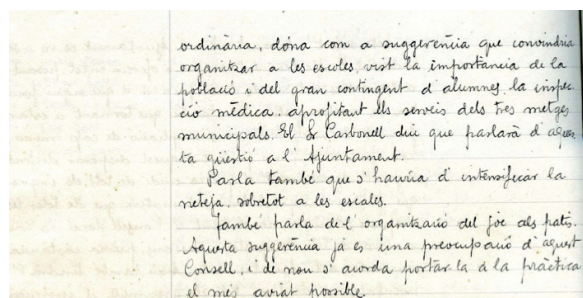 ordinària, dóna com a suggerència que convindria
organitzar a les escoles, vist la importancia de la
població i del gran contingent d'alumnes, la inspec-
ció mèdica, aprofitant els serveis dels tres metges
municipals. El Sr Carbonell diu que parlarà d'aques-
ta qüestió a l'Ajuntament.
Parla també que s'hauria d'intensificar la
neteja, sobretot a les escales.
També parla de l'organització del joc als patis.
Aquesta suggerència ja és una preocupació d'aquest
Consell, i de nou s'acorda portar-la a la pràctica
el més aviat possible.